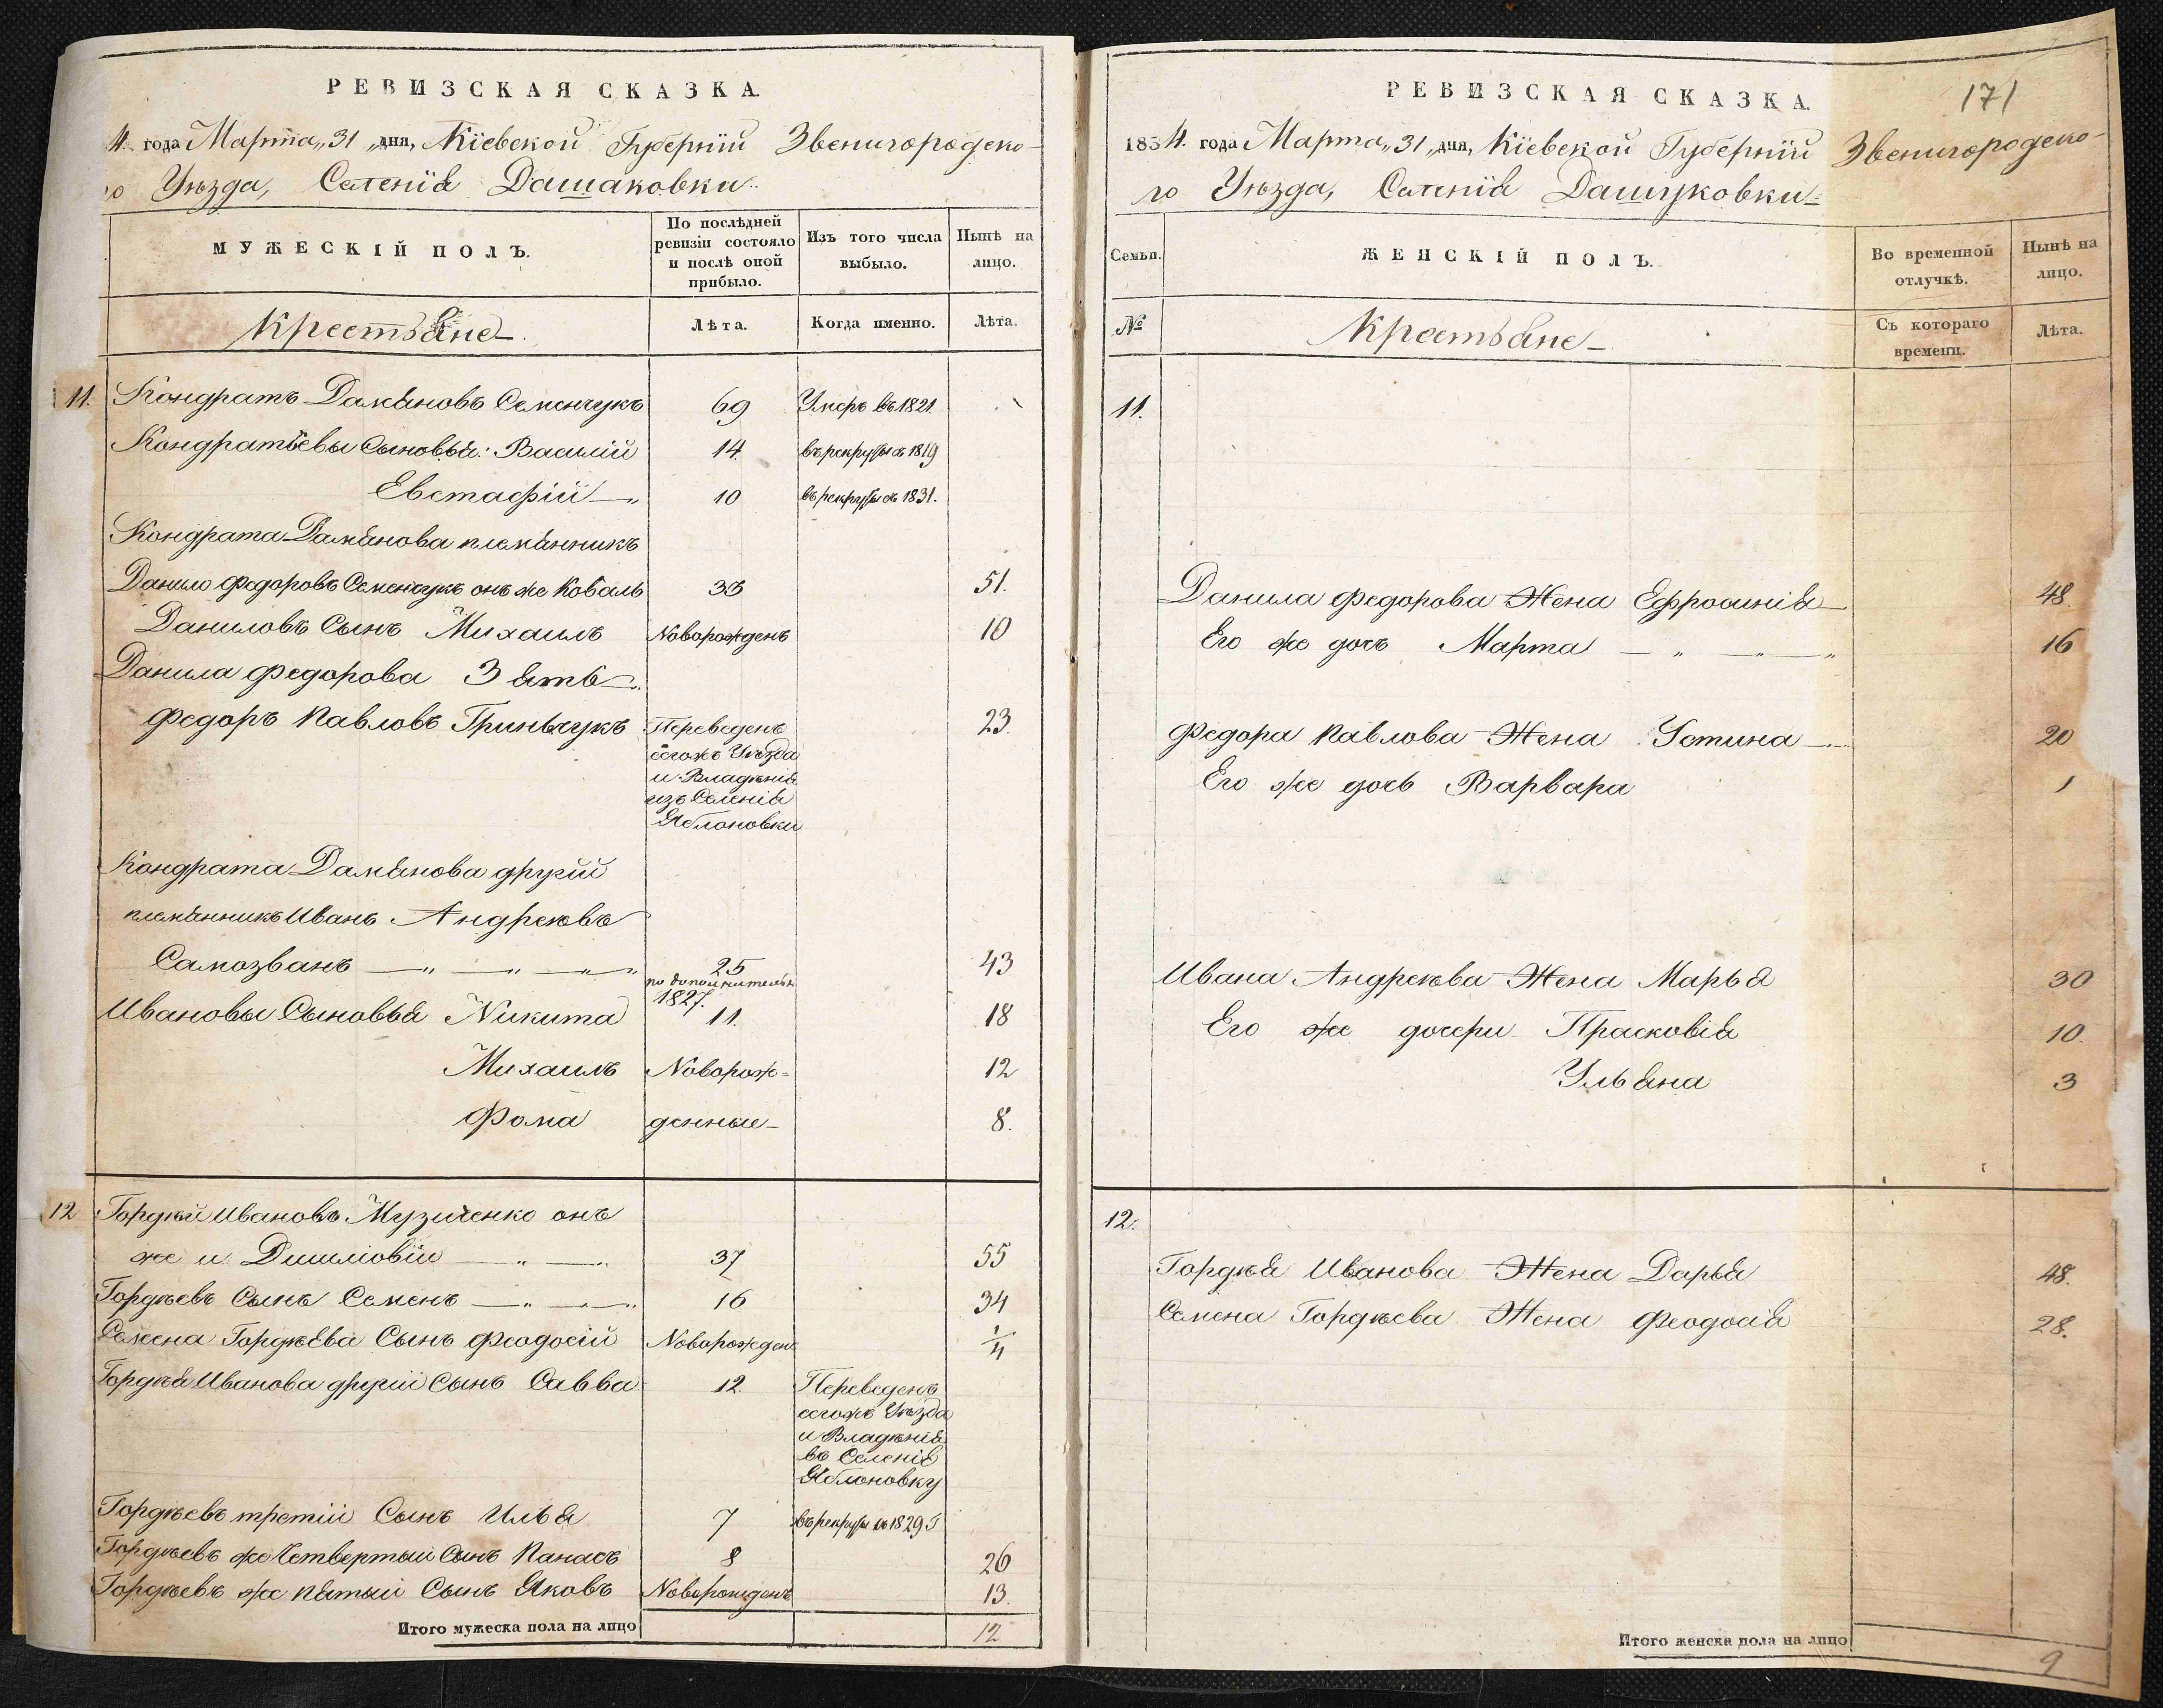 РЕВИЗСКАЯ СКАЗКА.
4. года Марта „31„ дня, Кіевской Губерніи Звенигородско-
го Уѣзда, Селенія Дашаковки
МУЖЕСКІЙ ПОЛЪ.
По послѣдней ревизіи состояло и послѣ оной прибыло.
Изъ того числа выбыло.
Нынѣ на лицо.
Крестьяне
Лѣта.
Когда именно.
Лѣта.
11. Кондратъ Дамяновъ Семенчукъ 69 Умеръ въ 1821.
Кондратьевы Сыновья: Василій 14 въ рекруты въ 1819
Евстафій 10 въ рекруты въ 1831.
Кондрата Дамянова племянникъ
Данило Федоровъ Семенчукъ онъ же Коваль 33 51.
Даниловъ Сынъ Михаилъ Новорожденъ 10
Данила Федорова Зять
Федоръ Павловъ Гриньчукъ Переведенъ 23.
сегожъ Уѣзда
и Владѣнія
изъ Селенія
Яблоновки
Кондрата Дамянова другій
племянникъ Иванъ Андреевъ
Самозванъ 25 43
по дополнительн
1827.
Ивановы Сыновья Никита 11. 18
Михаилъ Новорож= 12
Фома денные 8.
12 Гордѣй Ивановъ Музиченко онъ
же и 37 55
Гордѣевъ Сынъ Семенъ 16 34
Семена Гордѣева Сынъ Феодосій Новорожден 1/4
Гордѣя Иванова другій Сынъ Савва 12 Переведенъ
сегожъ Уѣзда
и Владѣнія
въ Селеніе
Яблоновку
Гордѣевъ третій Сынъ Илья 7 въ рекруты въ 1829 г
Гордѣевъ же Четвертый Сынъ Панасъ 8 26
Гордѣевъ же пятый Сынъ Яковъ Новорожденъ 13.
Итого мужеска пола на лицо 12
171
РЕВИЗСКАЯ СКАЗКА.
1854. года Марта „31„ дня, Кіевской Губерніи Звенигородско-
го Уѣзда, Селенія Дашуковки
Семьи.
ЖЕНСКІЙ ПОЛЪ.
Во временной отлучкѣ.
Нынѣ на лицо.
№
Крестьяне
Съ котораго времени.
Лѣта.
11.
Данила Федорова Жена Ефросинія 48
Его же дочь Марта 16
Федора Павлова Жена Устина 20
Его же дочь Варвара 1
Ивана Андреева Жена Марья 30
Его же дочери Прасковія 10.
Ульяна 3
12.
Гордѣя Иванова Жена Дарья 48.
Семена Гордѣева Жена Феодосія 28.
Итого женска пола на лицо 9